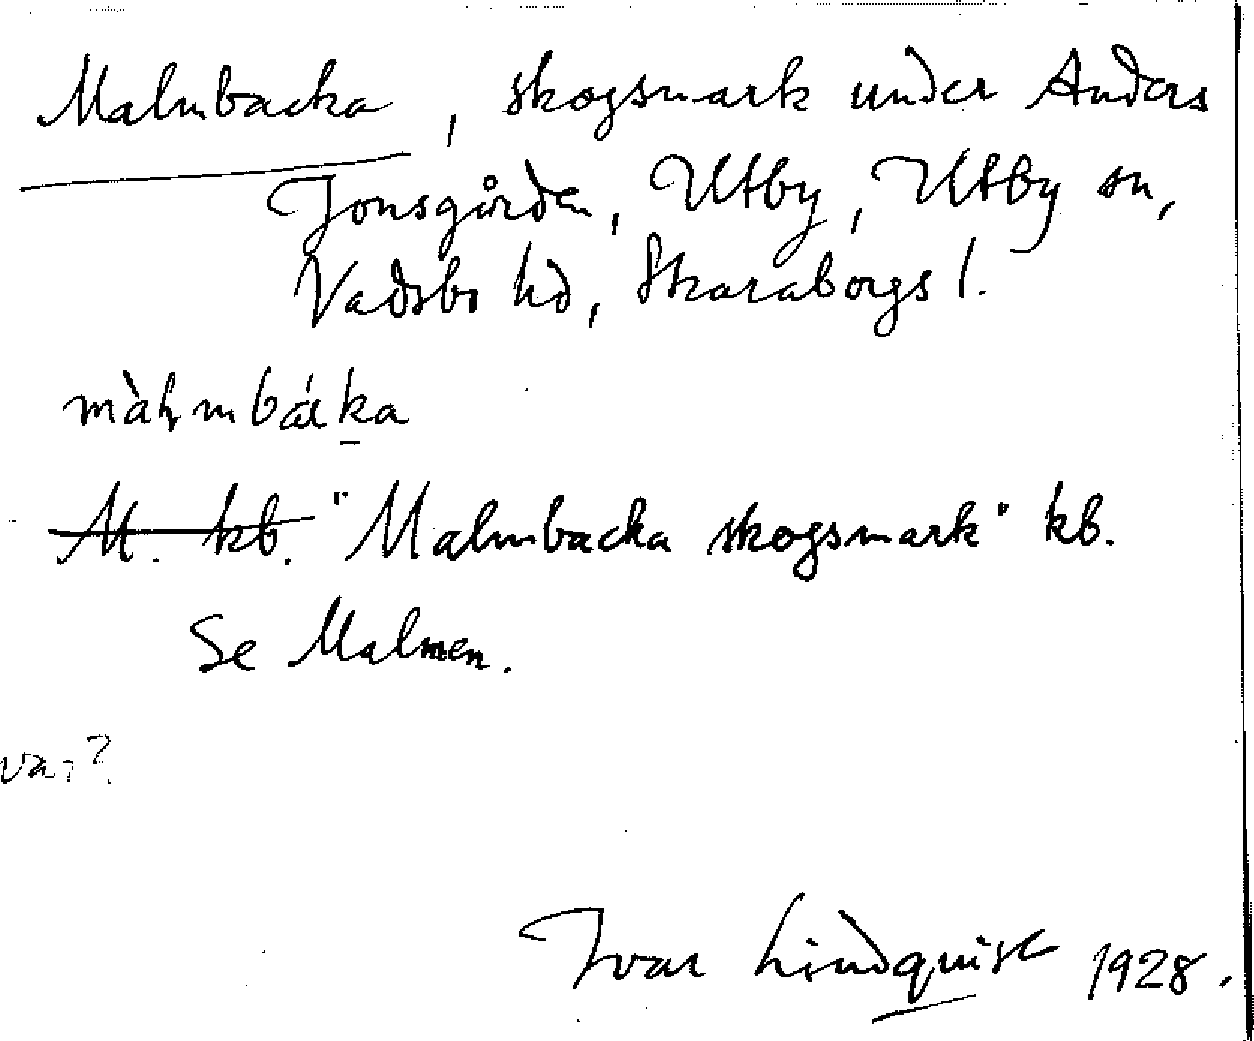 Malmbacka, skogsmark under Anders
Jonsgården, Utby, Utby sn,
Vadsbo hd, Skaraborgs l.
M. kb. "Malmbacka skogsmark" kb.
Se Malmen.
Ivar Lindquist 1928.